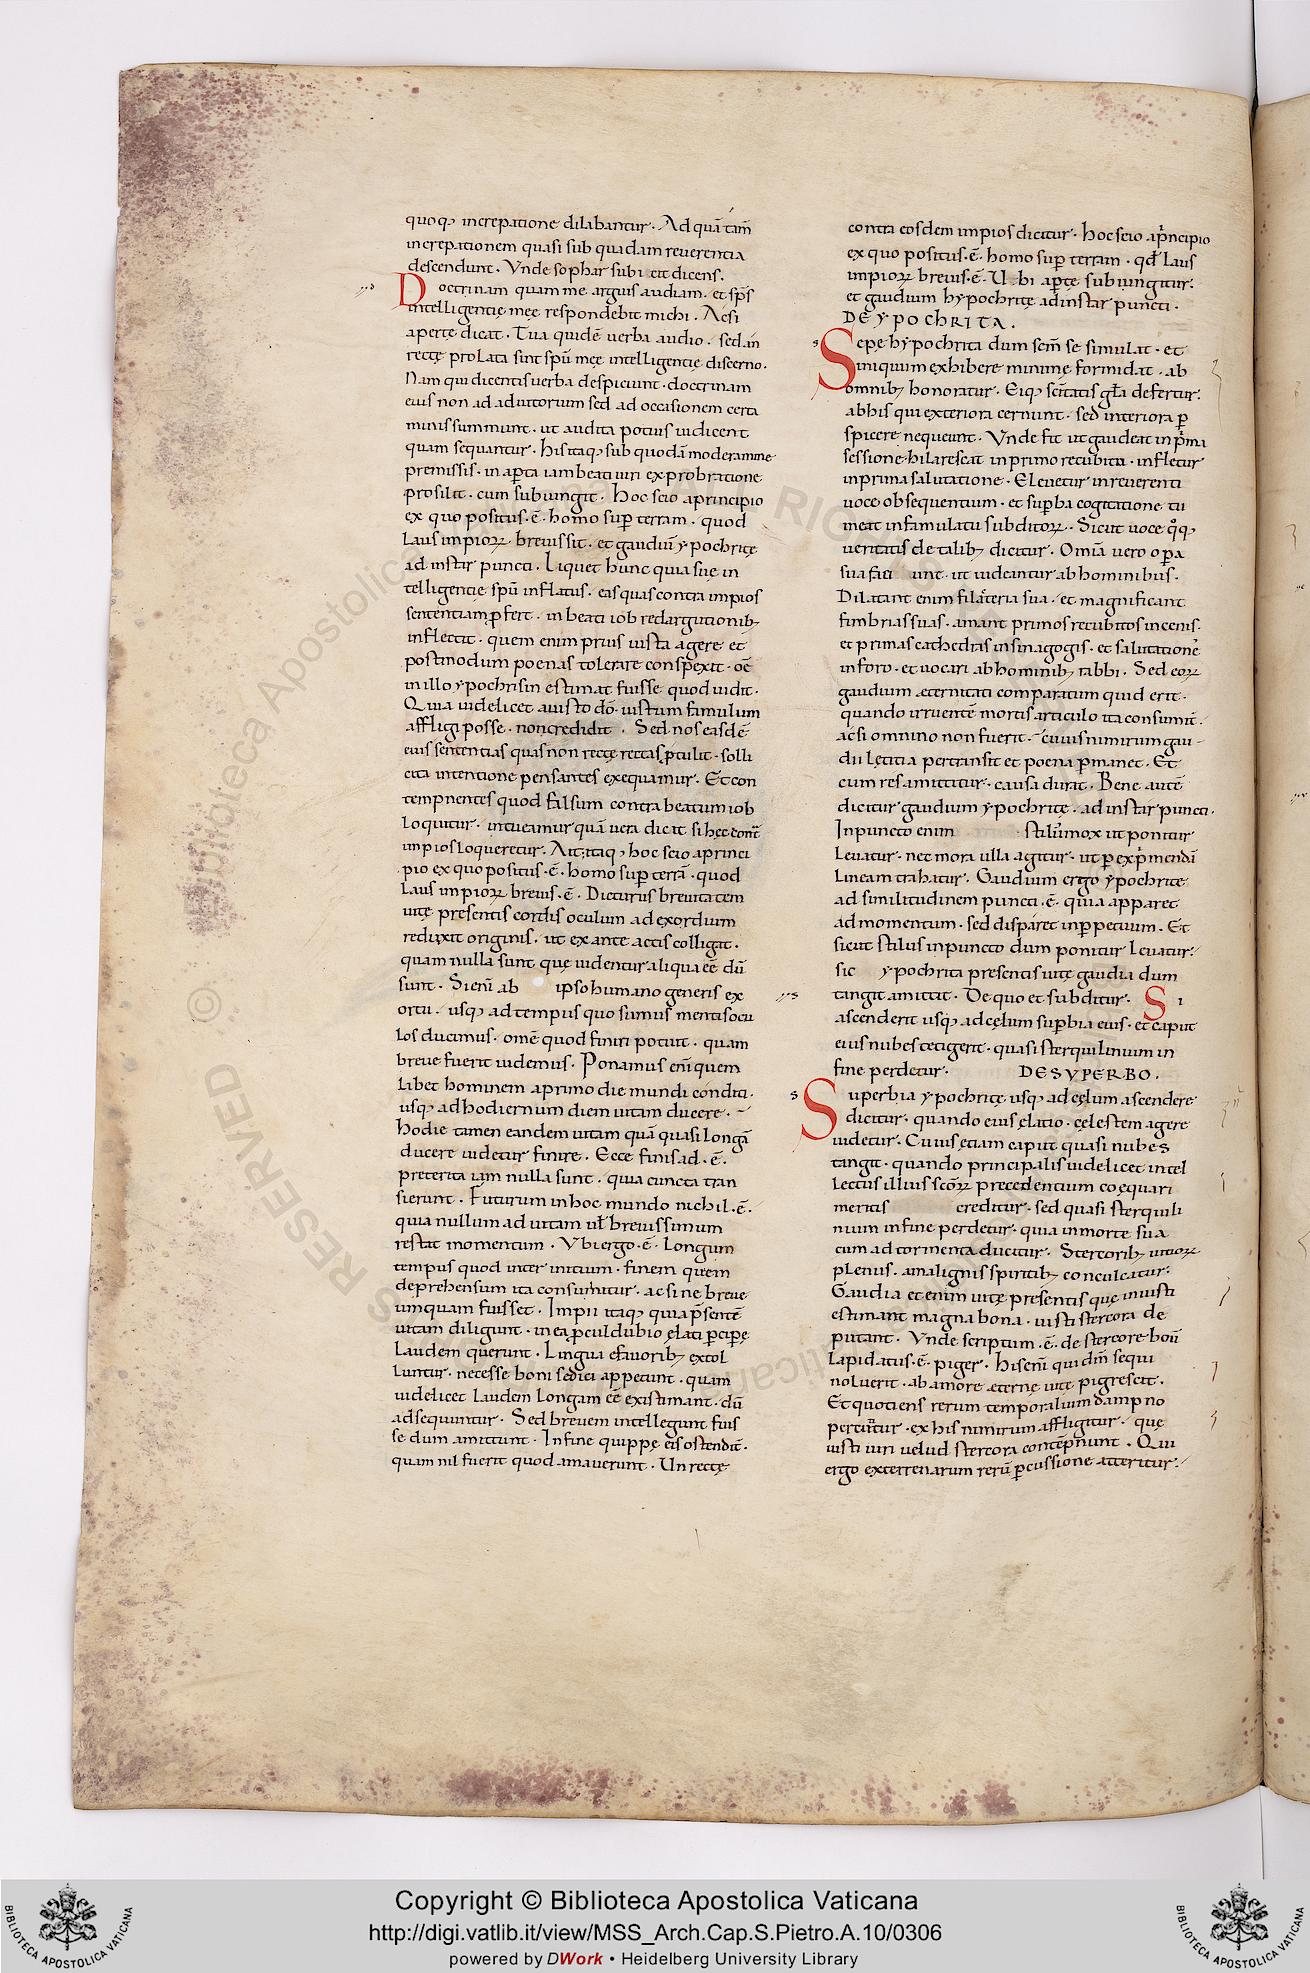 quoq; increpatione dilabantur. Ad quā tam̄
increpationem quasi sub quadam reuerentia
descendunt. Vnde sophar subiecit dicens.
Doctrinam quam me arguis audiam. et sp̄s
intelligentię męe respondebit michi. Acsi
aperte dicat. Tua quidē uerba audio. sed an
recte prolata sint spū męę intelligentię discerno.
Nam qui dicentis uerba despiciunt. doctrinam
eius non ad adiutorium sed ad occasionem certa
minis summunt. ut audita potius iudicent
quam sequantur. His itaq; sub quodā moderamine
premissis. in ap̄ta iam beati uiri exprobratione
prosilit. cum subiungit. Hoc scio a principio
ex quo positus .ē. homo sup̄ terram. quod
Laus impioꝝ. breuis sit. et gaudiū ypochritę
ad instar puncti. Liquet hunc quia suę in
telligentię spū inflatus. eas quas contra impios
sententiam p̄fert. in beati iob redargutionib;
inflectit. quem enim prius iusta agere et
postmodum poenas tolerare conspexit. om̄e
in illo ypochrisin estimat fuisse quod uidit.
Quia uidelicet a iusto dō. iustum famulum
affligi posse. non credidit. Sed nos easdē
eius sententias quas non recte rectas p̄tulit. solli
cita intentione pensantes exequamur. Et con
tempnentes quod falsum contra beatum iob
loquitur. intueamur quā uera dicat si hęc contra
impios loqueretur. Ait itaq; hoc scio a princi
pio ex quo positus .ē. homo sup̄ terrā. quod
Laus impioꝝ breuis .ē. Dicturus breuitatem
uitę presentis cordis oculum ad exordium
reduxit originis. ut ex ante actis colligat.
quam nulla sunt quę uidentur aliqua eē dū
sunt. Si eni ab ipso humano generis ex
ortu. usq; ad tempus quo sumus mentis ocu
los ducimus. omē quod finiri potuit. quam
breue fuerit uidemus. Ponamus eni quem
libet hominem a primo die mundi conditi.
usq; ad hodiernum diem uitam ducere.
Hodie tamen eandem uitam quā quasi longā
ducere uidetur finire. Ecce finis ad .ē.
preterita iam nulla sunt. quia cuncta tran
sierunt. Futurum in hoc mundo nichil .ē.
quia nullum ad uitam ul breuissimum
restat momentum. Vbi ergo .ē. longum
tempus quod inter initium. finem quem
deprehensum ita consumitur. ac si ne breue
umquam fuisset. Impii itaq; quia p̄sentē
uitam diligunt. in ea p̄cul dubio ęlati p̄cipe
Laudem querunt. Lingua e fauorib; extol
luntur. necesse boni se dici appetunt. quam
uidelicet laudem longam eē existimant. dū
adsequuntur. Sed breuem intellegunt fuis
se dum amittunt. In fine quippe eis ostendit.
quam nil fuerit quod amauerunt. Vn recte
contra eosdem impios dicitur. Hoc scio a p̄ncipio
ex quo positus .ē. homo sup̄ terram. qd Laus
impioꝝ breuis .ē. Ubi ap̄te subiungitur.
et gaudium hypochritę ad instar puncti.
DE YPOCHRITA.
Sepe hypochrita dum scm̄ se simulat. et
iniquum exhibere minime formidat. ab
omnib; honoratur. Eiq; sc̄itatis gła defertur.
ab his qui exteriora cernunt. sed interiora p̄
spicere nequeunt. Vnde fit ut gaudeat in p̄ma
sessione. hilarescat in primo recubitu. infletur
in prima salutatione. Eleuetur in reuerenti
uoce obsequentium. et sup̄ba cogitatione tu
meat in famulatu subditoꝝ. Sicut uoce qq̄;
ueritatis de talib; dicitur. Omīa uero op̄a
sua faci unt. ut uideantur ab hominibus.
Dilatant enim filateria sua. et magnificant
fimbrias suas. amant primos recubitos in cenis.
et primas cathedras in sinagogis. et salutationē
in foro. et uocari ab hominib; rabbi. Sed eoꝝ
gaudium aeternitati comparatum quid erit.
quando irruentē mortis articulo ita consumit.
ac si omnino non fuerit. cuius nimirum gau
dii lętitia pertransit et poena p̄manet. Et
cum res amittitur. causa durat. Bene autē
dicitur gaudium ypochritę. ad instar puncti.
In puncto enim stilus mox ut ponitur
leuatur. nec mora ulla agitur. ut p̄ exp̄mendā
lineam trahatur. Gaudium ergo ypochritę
ad similitudinem puncti .ē. quia apparet
ad momentum. sed disparet inp̄petuum. Et
sicut stilus in puncto dum ponitur leuatur.
sic ypochrita presentis uitę gaudia dum
tangit amittit. De quo et subditur. Si
ascenderit usq; ad cęlum sup̄bia eius. et caput
eius nubes tetigerit. quasi sterquilinium in
fine perdetur. DE SVPERBO.
Superbia ypochritę usq; ad cęlum ascendere
dicitur. quando eius ęlatio. cęlestem agere
uidetur. Cuius etiam caput quasi nubes
tangit. quando principalis uidelicet intel
lectus illius scōꝝ precedentium coęquari
meritis creditur. sed quasi sterquili
nium in fine perdetur. quia in morte sua
cum ad tormenta ducitur. Stercorib; uitioꝝ
plenus. a malignis spiritib; conculcatur.
Gaudia et enim uitę presentis quę iniusti
estimant magna bona. iusti stercora de
putant. Vnde scriptum .ē. de stercore boū
lapidatus .ē. piger. His eni qui dm̄ sequi
noluerit. ab amore aeterne uitę pigrescit.
Et quotiens rerum temporalium dampno
percutitur. ex his nimirum affligitur. quę
iusti uiri uelud stercora contēpnunt. Qui
ergo ex terrenarum rerū p̄cussione atteritur.
© Biblioteca Apostolica Vaticana
ALL RIGHTS RESERVED
Copyright © Biblioteca Apostolica Vaticana
http://digi.vatlib.it/view/MSS_Arch.Cap.S.Pietro.A.10/0306
powered by DWork • Heidelberg University Library
BIBLIOTECA APOSTOLICA VATICANA
BIBLIOTECA APOSTOLICA VATICANA